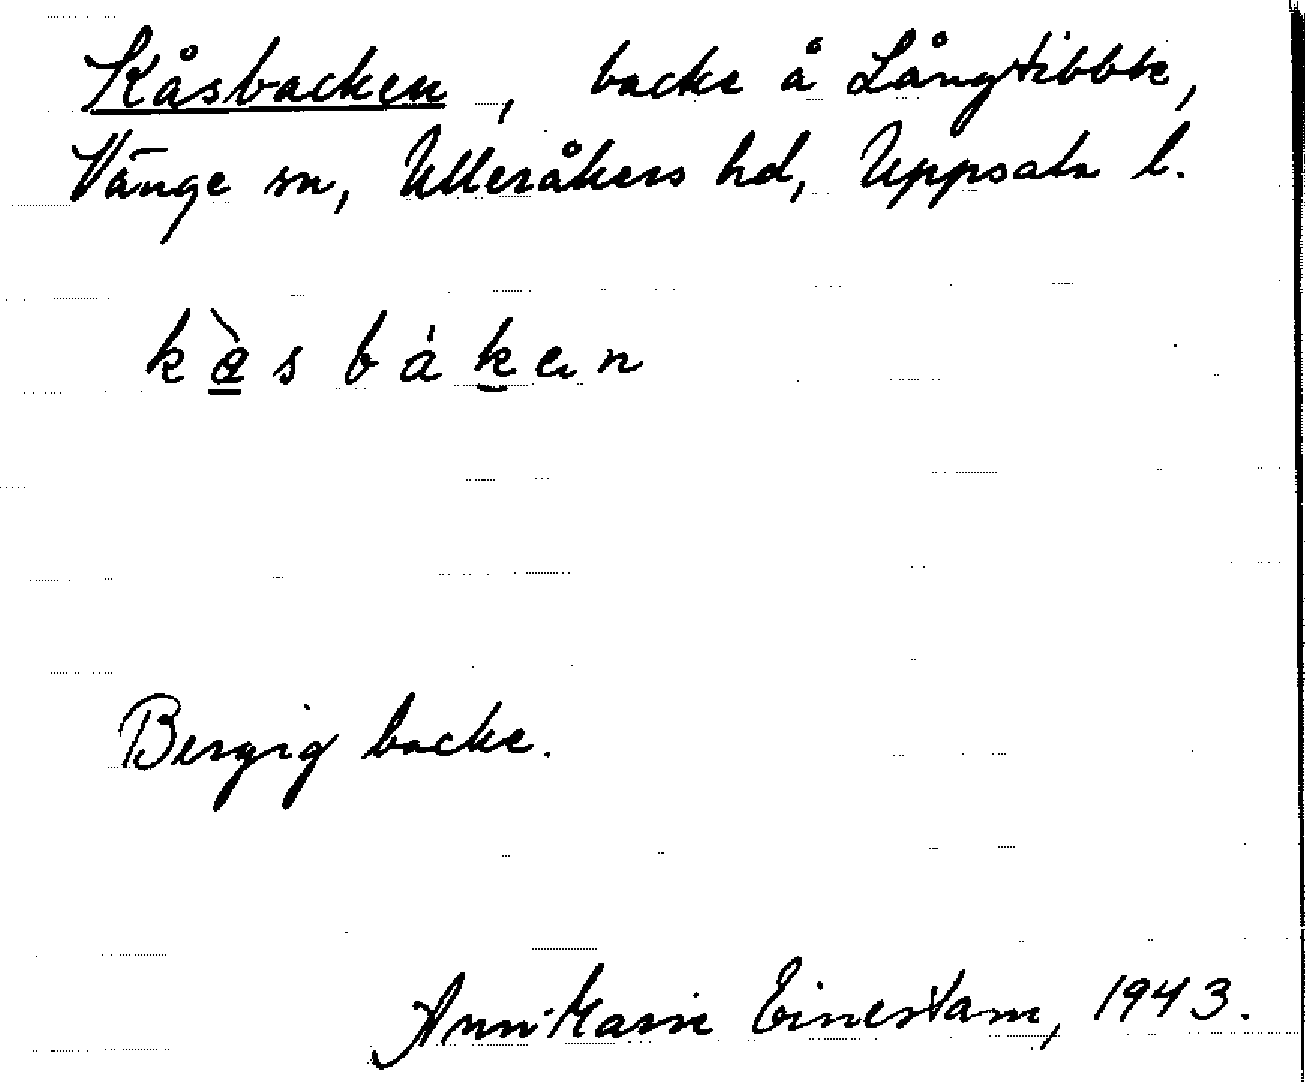 Kåsbacken, backe å Långtibble,
Vänge sn, Ulleråkers hd, Uppsala l.
Bergig backe.
Ann-Marie Einestam, 1943.